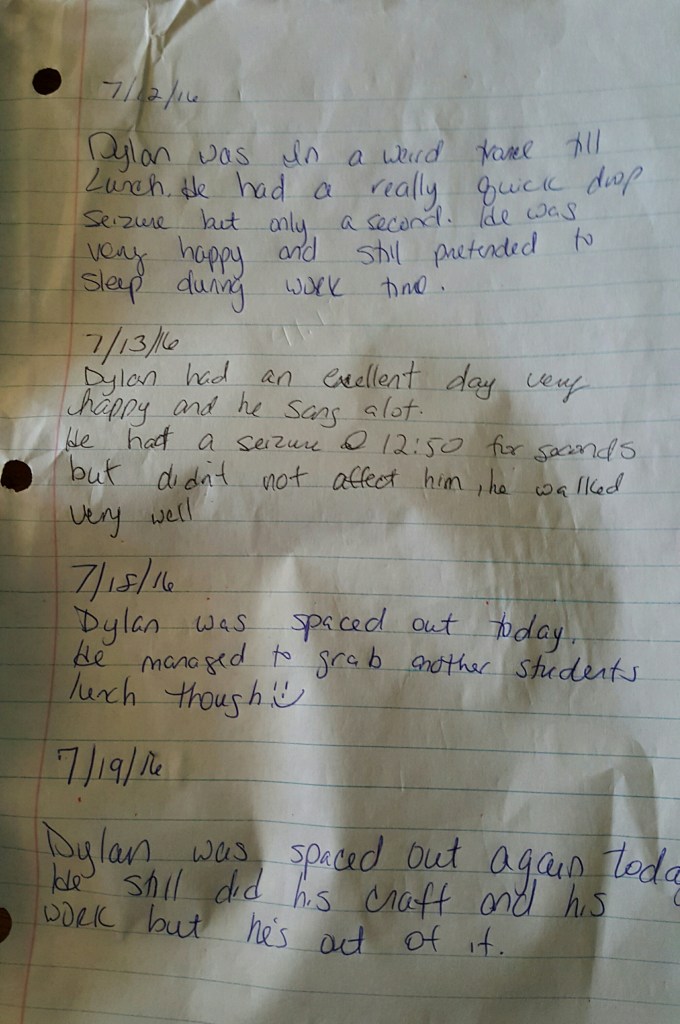 7/12/16
Dylan was in a weird trance till
Lunch. He had a really quick drop
seizure but only a second. He was
very happy and still pretended to
sleep during work time.
7/13/16
Dylan had an excellent day very
happy and he sang alot.
He had a seizure @ 12:50 for seconds
but didn't not affect him, he walked
very well
7/18/16
Dylan was spaced out today.
He managed to grab another students
lunch though!
7/19/16
Dylan was spaced out again toda
He still did his craft and his
work but he's out of it.